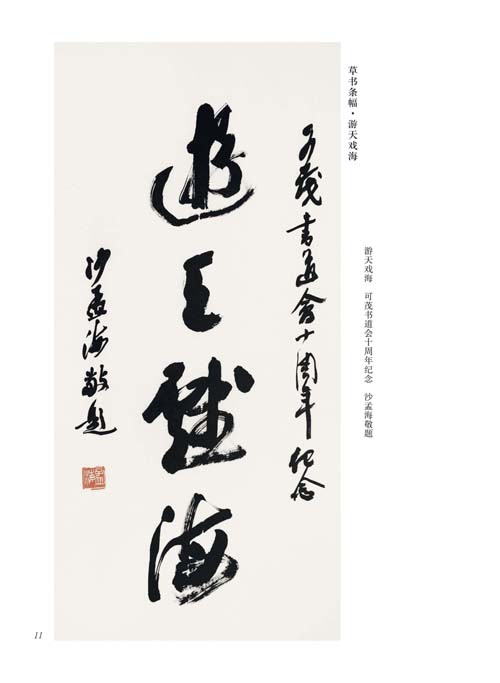 草书条幅·游天戏海
游天戏海　可茂书道会十周年纪念　沙孟海敬题
可茂書道會十周年纪念
遊天戲海
沙孟海敬題
11